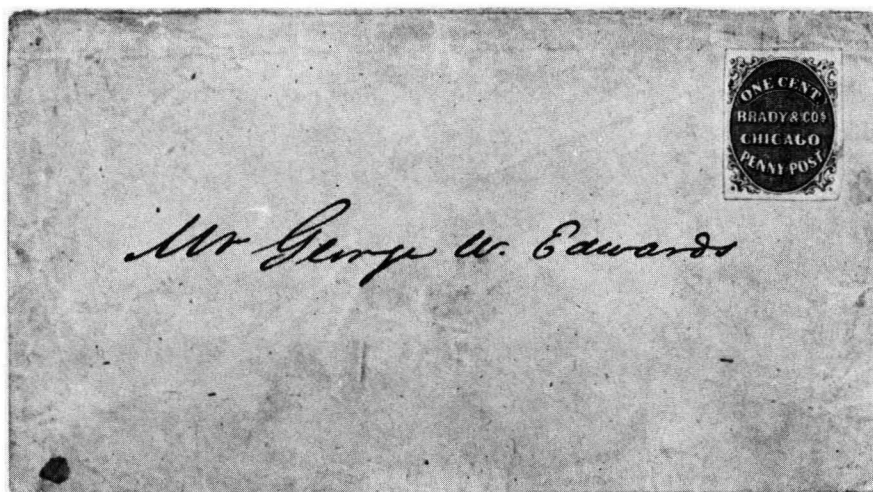 ONE CENT
BRADY & COS
CHICAGO
PENNY POST.
Mr George W. Edwards